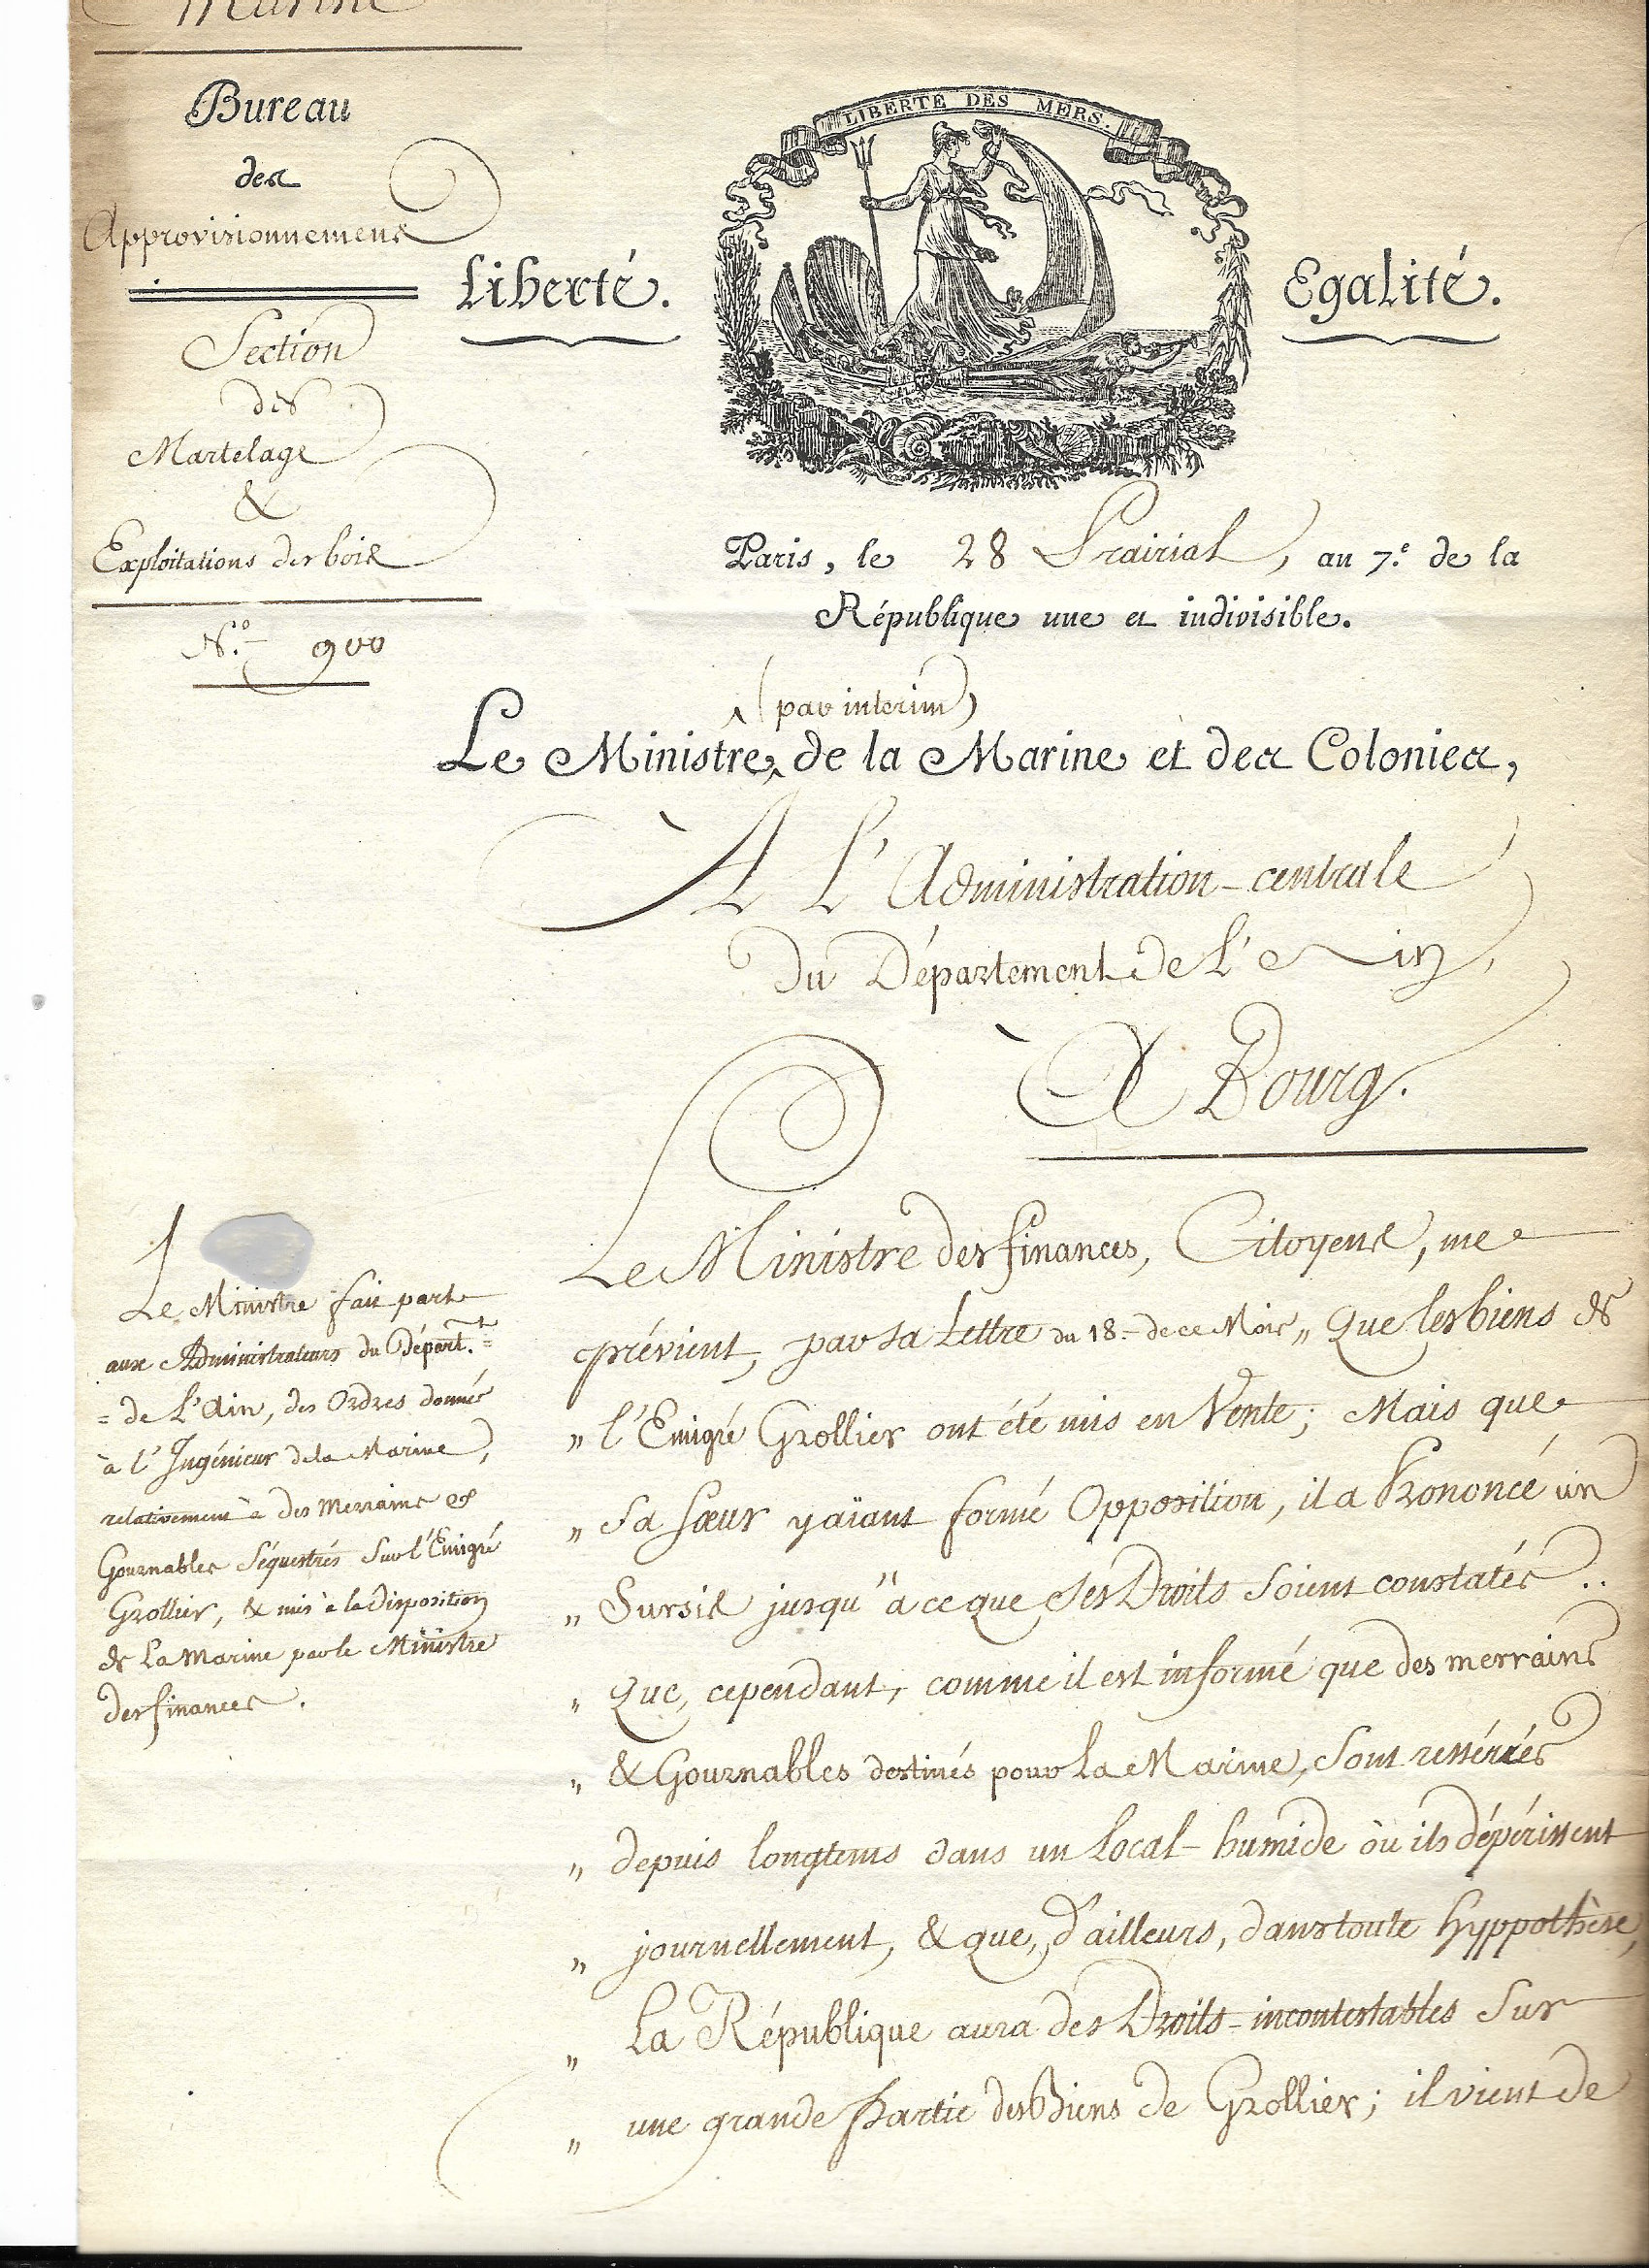 Marine
Bureau
des
Approvisionnemens
Section
des
Martelage
&
Exploitations des bois
N.° 900
LIBERTÉ DES MERS.
Liberté.
Egalité.
Paris, le 28 Prairial, an 7.e de la
République une et indivisible.
(par interim)
Le Ministre, de la Marine et des Colonies,
A L'Administration-centrale
du Département de L'Ain,
A Bourg.
Le Ministre fait part
aux Administrateurs du Départ.t =
= de L'Ain, des Ordres donnés
à l'Ingénieur de la Marine,
relativement à des Merrains et
Gournables Séquestrés Sur l'Emigré
Grollier, & mis à la Disposition
de La Marine par le Ministre
des finances.
Le Ministre des finances, Citoyens, me
prévient, par sa Lettre du 18. de ce Mois, „ Que les biens de
„ l'Emigré Grollier ont été mis en Vente; Mais que
„ Sa Sœur y aïant formé Opposition, il a Prononcé un
„ Sursis jusqu'à ce que Ses Droits Soient constatés..
„ Que, cependant, comme il est informé que des merrains
„ & Gournables destinés pour La Marine, Sont resserrés
„ depuis longtems dans un Local-humide où ils dépérissent
„ journellement, & que, d'ailleurs, dans toute hyppothèse,
„ La République aura des Droits-incontestables Sur
„ une grande Partie des Biens de Grollier; il vient de